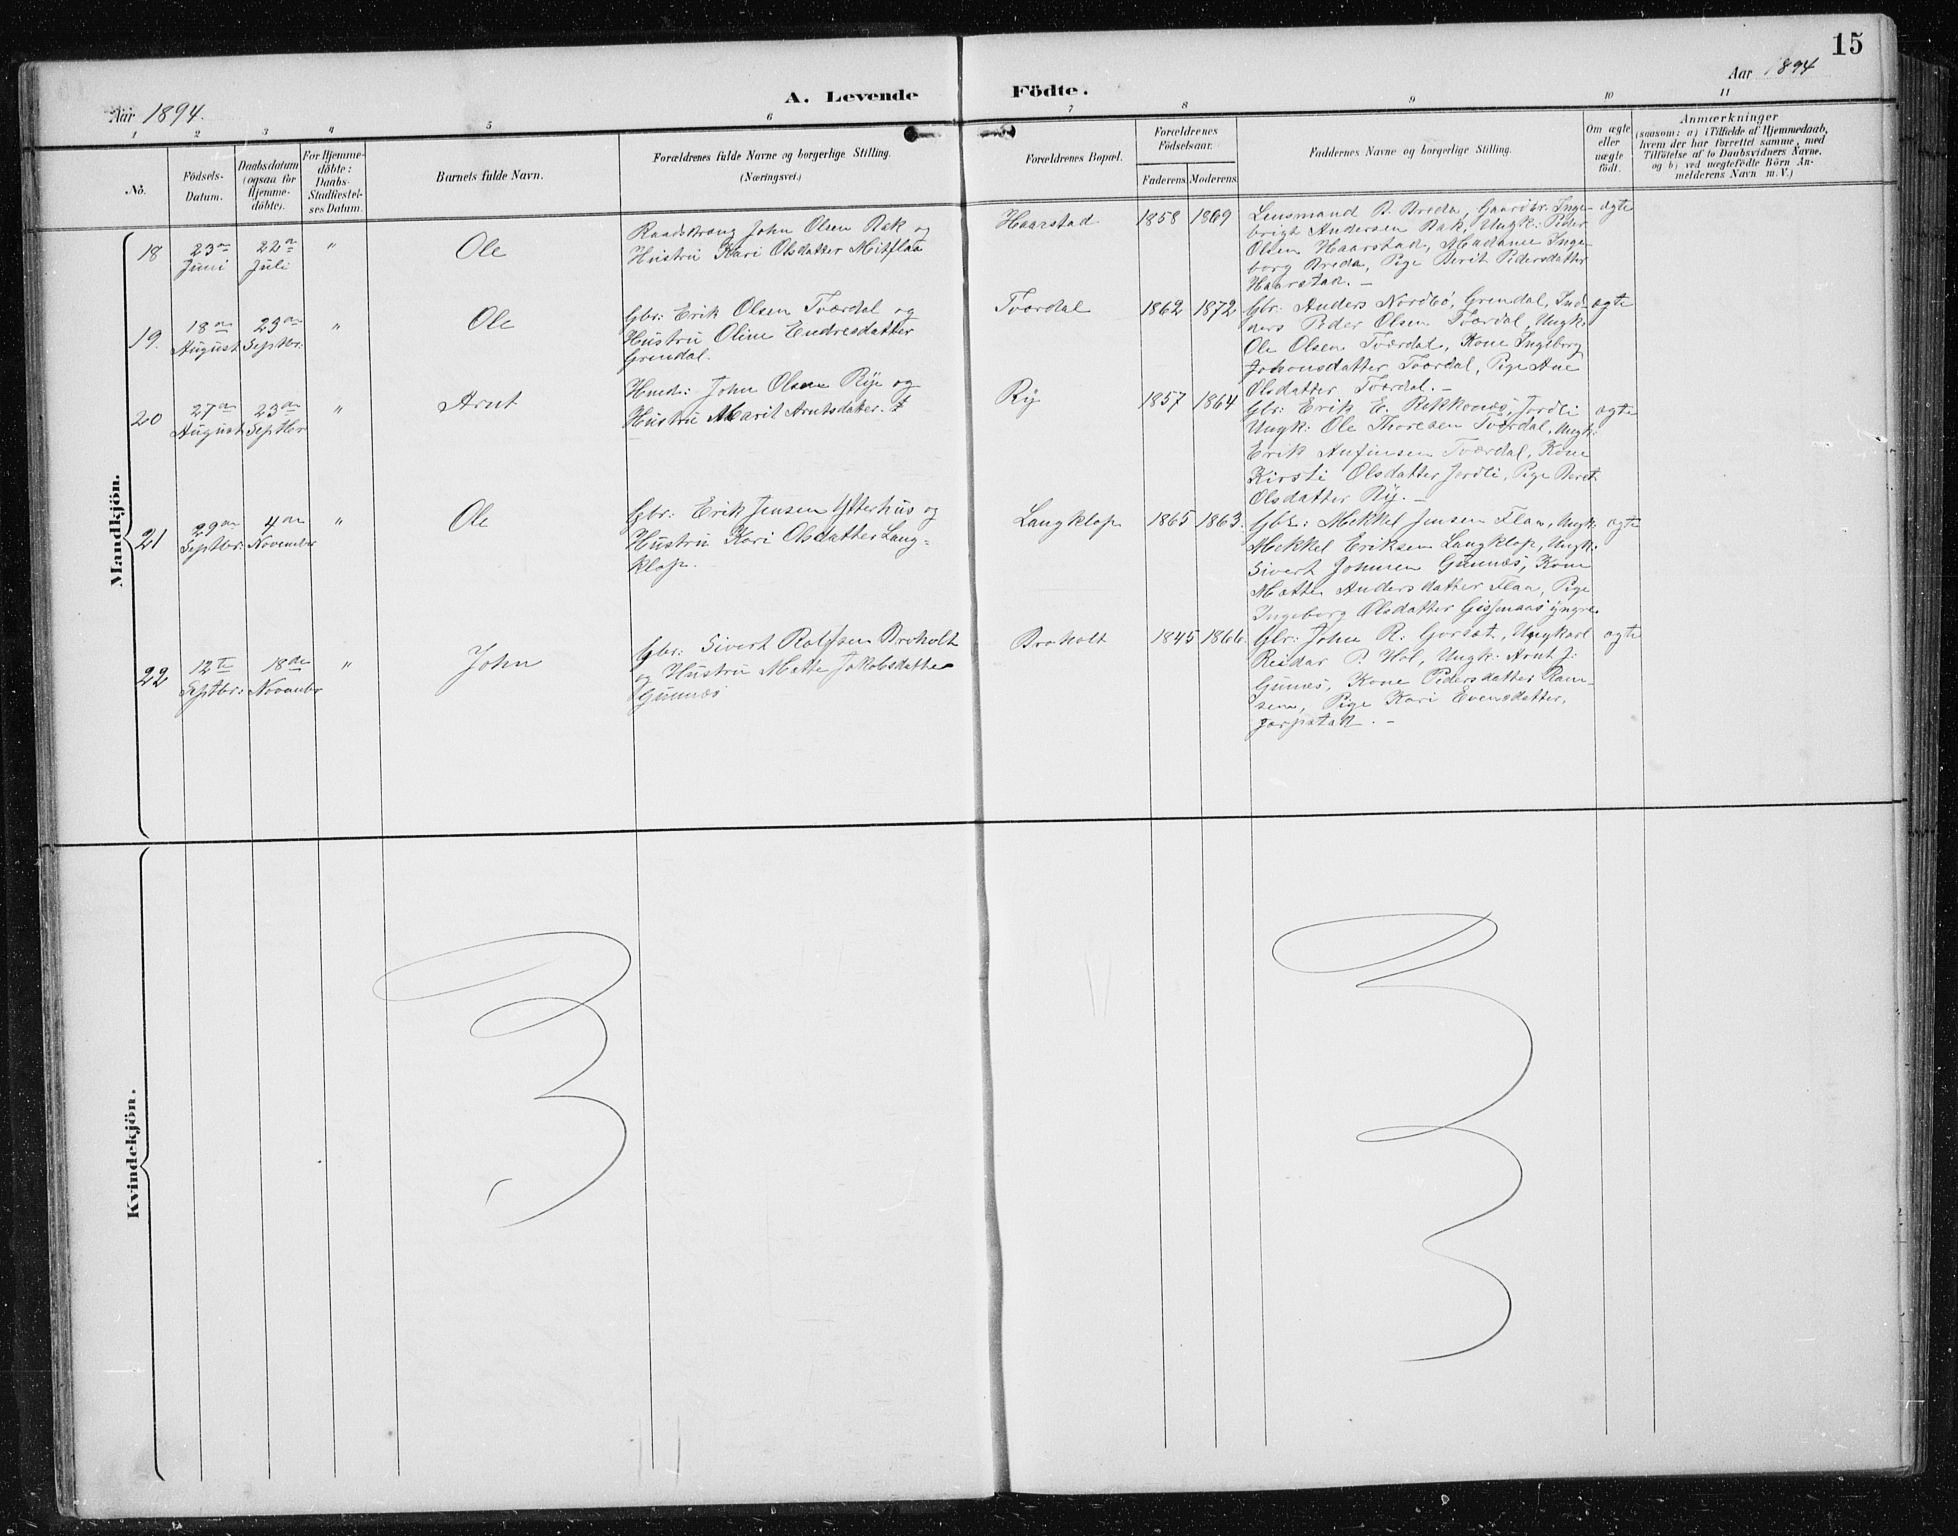 15
Aar 1894. A. Levende Födte. Aar 1894
1 2 3 4 5 6 7 8 9 10 11
No.
Födsels-
Datum.
Daabsdatum
(ogsaa for
Hjemme-
döbte).
For Hjemme-
döbte:
Daabs-
Stadfæstel-
ses Datum.
Barnets fulde Navn.
Forældrenes fulde Navne og borgerlige Stilling.
(Næringsvei.)
Forældrenes Bopæl.
Forældrenes
Födselsaar.
Faderens. Moderens.
Faddernes Navne og borgerlige Stilling.
Om ægte
eller
uægte
födt.
Anmærkninger
(saasom: a) i Tilfælde af Hjemmedaab,
hvem der har forrettet samme, med
Tilföielse af to Daabsvidners Navne.
og b) ved uægtefödte Börn An-
melderens Navn m. V.)
Mandkjön.
18
23de
Juni
22de
Juli
"
Ole
John Olsen Bak og
Hustru Kari Olsdatter
Haarstad
1858 1869
Lensmand B. Breda, Gaardbr: Inge-
brigt Andersen Bak, Ungk: Peder
Olsen Haarstad, Madame Inge-
borg Breda, Pige Berit Pedersdatter
Haarstad. –
ægte
19.
18de
August
23de
Septbr:
"
Ole
Gbr: Erik Olsen Tværdal og
Hustru Oline Endresdatter
Grendal.
Tværdal
1862 1872
Gbr: Anders Nordbö, Grendal, Ind-
ders Peder Olsen Tværdal, Ungk:
Ole Olsen Tværdal, Kone Ingeborg
Johnsdatter Tværdal, Pige Ane
Olsdatter Tværdal. –
ægte
20
27de
August
23de
Septbr
"
Arnt
Hmd: John Olsen Rye og
Hustru Marit Arntsdater.
Ry
1857 1864
Gbr: Erik E. Jordli
Ungk: Ole Thoresen Tværdal, Ungk:
Erik Anfinsen Tværdal, Kone
Kirsti Olsdatter Jordli, Pige Beret
Olsdatter Ry. –
ægte
21
29de
Septbr:
4de
November
"
Ole
Gbr: Erik Jensen Ytterhus og
Hustru Kari Olsdatter Lang-
klop.
Langklop
1865 1863.
Gbr: Mekkel Jensen Flaa, Ungk:
Mekkel Eriksen Langklop, Ungk:
Sivert Johnsen Gunnes, Kone
Mette Andersdatter Flaa, Pige
Ingeborg Olsdatter Gisnaas yngre
ægte
22
12te
Septbr:
18de
Novembr
"
John
Gbr: Sivert Rolfsen Broholt
og Hustru Mette Jakobsdatter
Gunnes
Broholt
1845 1866
Gbr: John R. Gorset, Ungkarl
Reidar P. Hol, Ungk: Arnt J.
Gunnes, Kone Pedersdatter Ram-
sem, Pige Kari Evensdatter,
ægte
Kvindekjön.